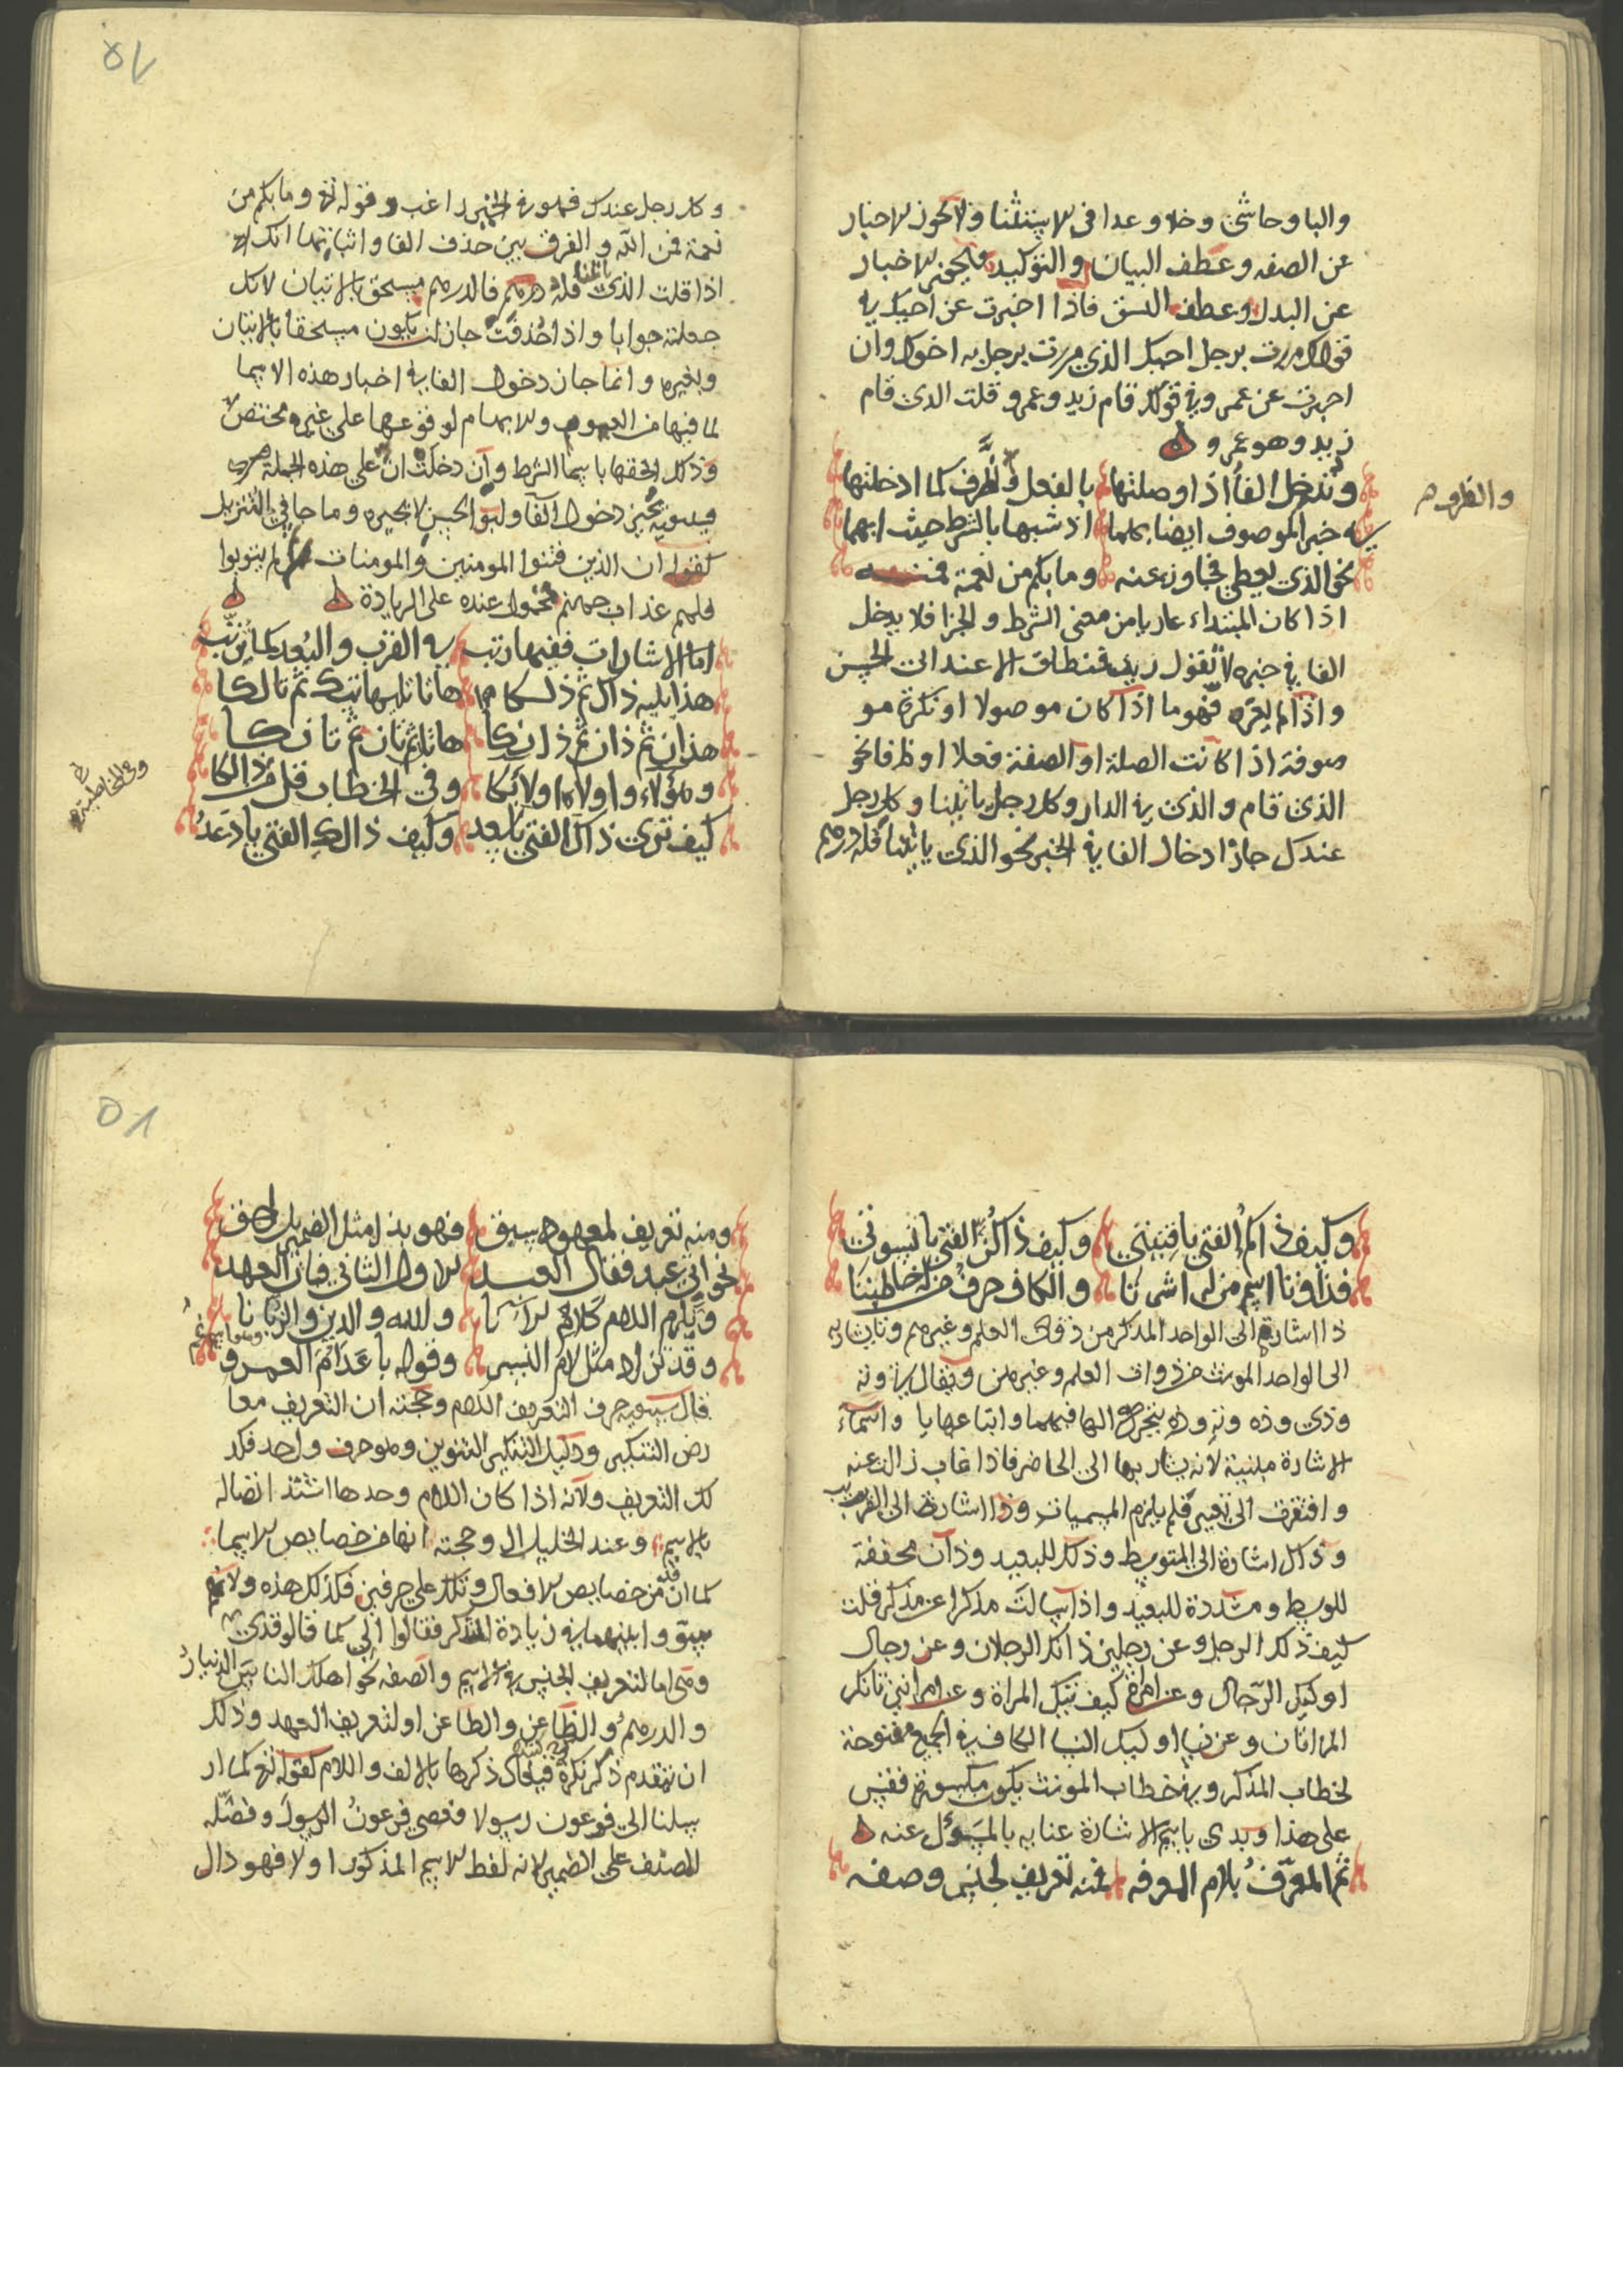 والبا وحاشى وخلا وعدا فى الاستثنا ولا يجوز الاخبار
عن الصفه وعطف البيان والتوكيد ويجوز الاخبار
عن البدل وعطف النسق فاذا اخبرت عن اخيك في
قولك مررت برجل اخيك الذي مررت برجل به اخوك وان
اخبرت عن عمرو في قولك قام زيد وعمرو قلت الذى قام
زيد وهو عمرو
وتدخل الفا اذا وصلتها بالفعل والظرف كما ادخلتها
والظروف
في خبر الموصوف ايضا بكلما اذ شبها بالشرط حيث ابهما
نحو الذي يعطي فجاوز عنه وما بكم من نعمة فمنه
اذا كان المبتداء عاريا من معنى الشرط والجزا فلا يدخل
الفا في خبره لا تقول زيد فمنطلق الا عند ابي الحسن
واذا لم يعره فهو ما اذا كان موصولا او نكرة مو
صوفة اذا كانت الصلة او الصفة فعلا او ظرفا نحو
الذى قام والذى في الدار وكل رجل ياتينا وكل رجل
عندك جاز ادخال الفا في الخبر نحو الذى ياتينا فله درهم
وكل رجل عندك فهو في الخير راغب وقوله تع وما بكم من
نعمة فمن الله والفرق بين حذف الفا واثباتها انك
اذا قلت الذى ياتينا فله درهم فالدرهم مستحق بالاتيان لانك
جعلته جوابا واذا حذفت جاز ان يكون مستحقا بالاتيان
وبغيره وانما جاز دخول الفا في اخبار هذه الاسما
لما فيها من العموم والابهام لوقوعها على غير مختص
وذلك الحقها باسما الشرط وان دخلت ان على هذه الجملة
فسيبويه يجيز دخول الفا وابو الحسن لا يجيزه وما جا في التنزيل
كقوله ان الذين فتنوا المومنين والمومنات ثم لم يتوبوا
فلهم عذاب جهنم محمول عنده على الزيادة
اما الاشارات ففيها رتب في القرب والبعد كما ترتب
هذا يليه ذاك ثم ذلكا هاتا تليها تيك ثم تالكا
هذان ثم ذان ثم ذانكا هاتان ثم تان ثم تانكا
وهؤلاء واولاء اولائكا وفي الخطاب قل من ذالكا
وفى المخاطبة
كيف ترى ذاك الفتى يا سعد وكيف ذالك الفتى يا دعد
وكيف ذاكم الفتى يا فتيتى وكيف ذاكن الفتى يا نسوتى
فذا وتا اسم من لي اشرتا والكاف حرف من له خاطبتا
ذا اشارة الى الواحد المذكر من ذوى العلم وغيرهم وتا يشار به
الى الواحد المونث من ذوات العلم وغيرهن ويقال تي وته
وذى وذه وته وذه بتحريك الها فيهما واتباعها يا واسماء
الاشارة مبنية لانه يشار بها الى الحاضر فاذا غاب زالت عنه
وافتقرت الى تغيير فلم يلزم المسميات وذا اشارة الى القريب
وذاك اشارة الى المتوسط وذلك للبعيد وذان مخففة
للوسط ومشددة للبعيد واذا سالت مذكرا عن مذكر قلت
كيف ذلك الرجل وعن رجلين ذانك الرجلان وعن رجال
اوليك الرجال وعن امراة كيف تيك المراة وعن امراتين تانك
المراتان وعن نسا اوليك النسا الكاف في الجميع مفتوحة
لخطاب المذكر وفي خطاب المونث يكون مكسورة فقس
على هذا وبدى باسم الاشارة عنايه بالمسؤل عنه
ثم المعرف بلام المعرفه فمنه تعريف لجنس وصفه
ومنه تعريف لمعهود سبق فهو بذا مثل الضمير ملتحق
نحو اتى عبد فقال العبد الاول الثاني فبان العهد
ويلزم اللام كلام الآنا ولله والذين والزمانا
وقد تزاد مثل لام النسر وقوله باعد ام العمرو
قال سيبويه حرف التعريف اللام وحجته ان التعريف معا
رض التنكير ودليل التنكير التنوين وهو حرف واحد فكذ
لك التعريف ولانه اذا كان اللام وحدها اشتد اتصاله
بالاسم وعند الخليل ال وحجته انها من خصايص الاسما
كما ان قد من خصايص الافعال وتلك على حرفين فكذلك هذه ولانهم
سوو ابينهما في زيادة التذكر فقالوا الى كما قالو قدى
وهى اما لتعريف الجنس في الاسم والصفه نحو اهلك الناس الدينار
والدرهم والظاعن والطاعن او لتعريف العهد وذلك
ان يتقدم ذكر نكرة فيحكى ذكرها بالالف واللام كقوله تع كما ار
سلنا الى فرعون رسولا فعصى فرعون الرسول وفضله
المصنف على الضمير لانه لفظ الاسم المذكور اولا فهو دال